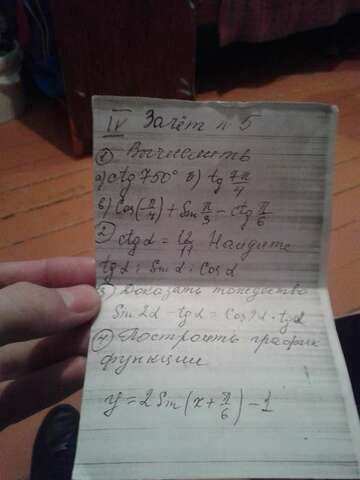 IV Зачёт № 5
① Вычислить
а) ctg 750° б) tg 7π/4
в) Cos(-π/4) + Sin π/3 - ctg π/6
② ctg α = 12/11 Найдите
tg α; Sin α; Cos α
③ Доказать тождество
Sin 2α - tg α = Cos 2α · tg α
④ Построить график
функции
y = 2 Sin (x + π/6) - 1